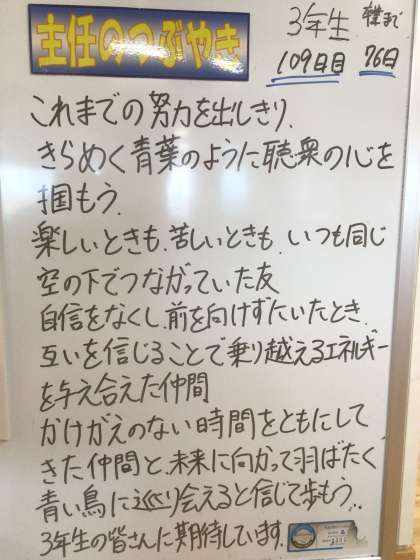 主任のつぶやき
3年生 卒業まで
109日目 76日
これまでの努力を出しきり、
きらめく青葉のように聴衆の心を
掴もう。
楽しいときも、苦しいときも、いつも同じ
空の下でつながっていた友
自信をなくし、前を向けずにいたとき、
互いを信じることで乗り越えるエネルギー
を与え合えた仲間
かけがえのない時間をともにして
きた仲間と、未来に向かって羽ばたく
青い鳥に巡り会えると信じて歩もう。
3年生の皆さんに期待しています。